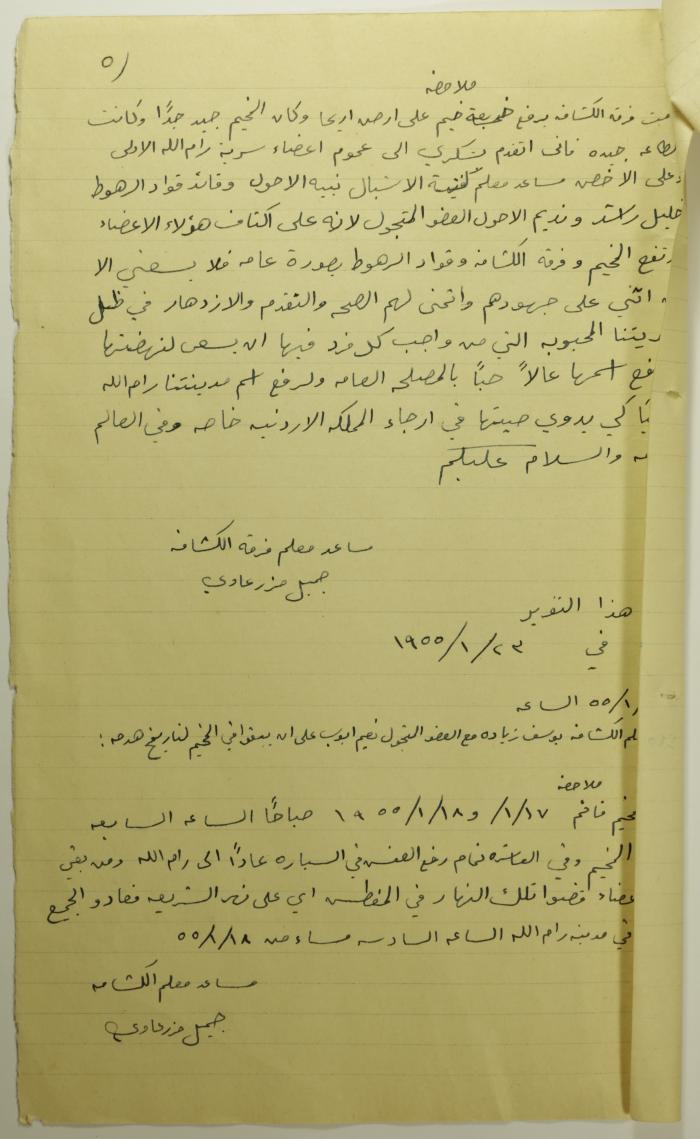 ٥/
ملاحظه
مت فرقه الكشافه برفع خيم على ارض اريحا وكان المخيم جيد جدًا وكانت
لطاعه جيده فاني اتقدم بشكري الى عموم اعضاء سرية رام الله الاولى
وعلى الاخص مساعد معلم الاشبال نبيه الاحول وقائد قواد الرهوط
خليل راشد ونديم الاحول العضو المتجول لانه على اكتاف هؤلاء الاعضاء
رتفع المخيم وفرقة الكشافه وقواد الرهوط بصورة عامه فلا يسعني الا
ه اثني على جهودهم واتمنى لهم الصحه والتقدم والازدهار في ظل
ريتنا المحبوبه التي من واجب كل فرد فيها ان يسعى لنهضتها
فع اسمها عالاً حبًا بالمصلحه العامه ولرفع اسم مدينتنا رام الله
يًا كي يدوي صيتها في ارجاء المملكه الاردنيه خاصه وفي العالم
مه والسلام عليكم
مساعد معلم فرقه الكشافه
جميل مزرعاوي
هذا التقرير
في ٢٣/١/١٩٥٥
٥٥/١/ الساعه
لم الكشافه يوسف زياده مع العضو المتجول نعيم ايوب على ان يبقوا في المخيم لتاريخ هدمه :
ملاحظه
مخيم قائم ١/١٧/ و١/١٨/ ١٩٥٥ صباحًا الساعه السابعه
المخيم وفي العاشره تمام رفع العفش في السياره عادًا الى رام الله ومن بقي
عضاء قضوا تلك النهار في المغطس اي على نهر الشريعه فعادو الجميع
في مدينه رام الله الساعه السادسه مساء من ٥٥/١/١٨
مساعد معلم الكشافه
جميل مزرعاوي